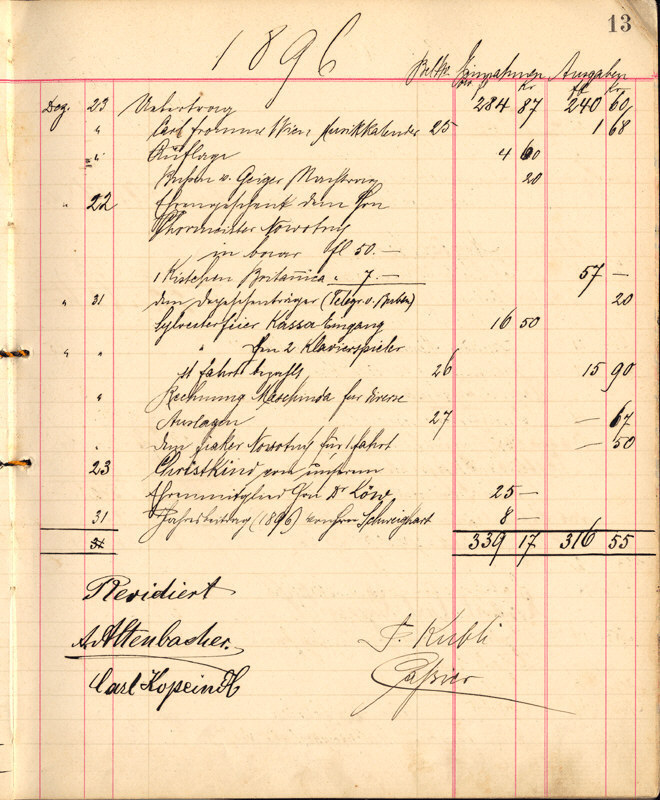 13
1896
Einnahmen Ausgaben
fl Kr fl Kr
Dez. 23 Uebertrag 284 87 240 60
" Carl Fromme Wien Musikkalender 25 1 68
" Auflage 4 60
v. Geiger Nachtrag 20
" 22 Ehrengeschenk dem Hrn
Chormeister Nowotny
in baar fl 50.—
1 Kistchen Britannica " 7.— 57 —
" 31 dem Depeschenträger (Telegr. v.) 20
Sylvesterfeier Kassa Eingang 16 50
" " Hrn 2 Klavierspieler
st Fahrt bezahlt 26 15 90
" Rechnung Maschinda für diverse
Auslagen 27 — 67
" dem Fiaker Nowotny für 1 Fahrt — 50
23 Christkind von unserem
Ehrenmitglied Hrn Dr Löw 25 —
31 Jahresbeitrag (1896) von Hrn Schweighart 8 —
31 339 17 316 55
Revidiert
A. Altenbacher. F. Kubli
Carl Kopeindl Cassier